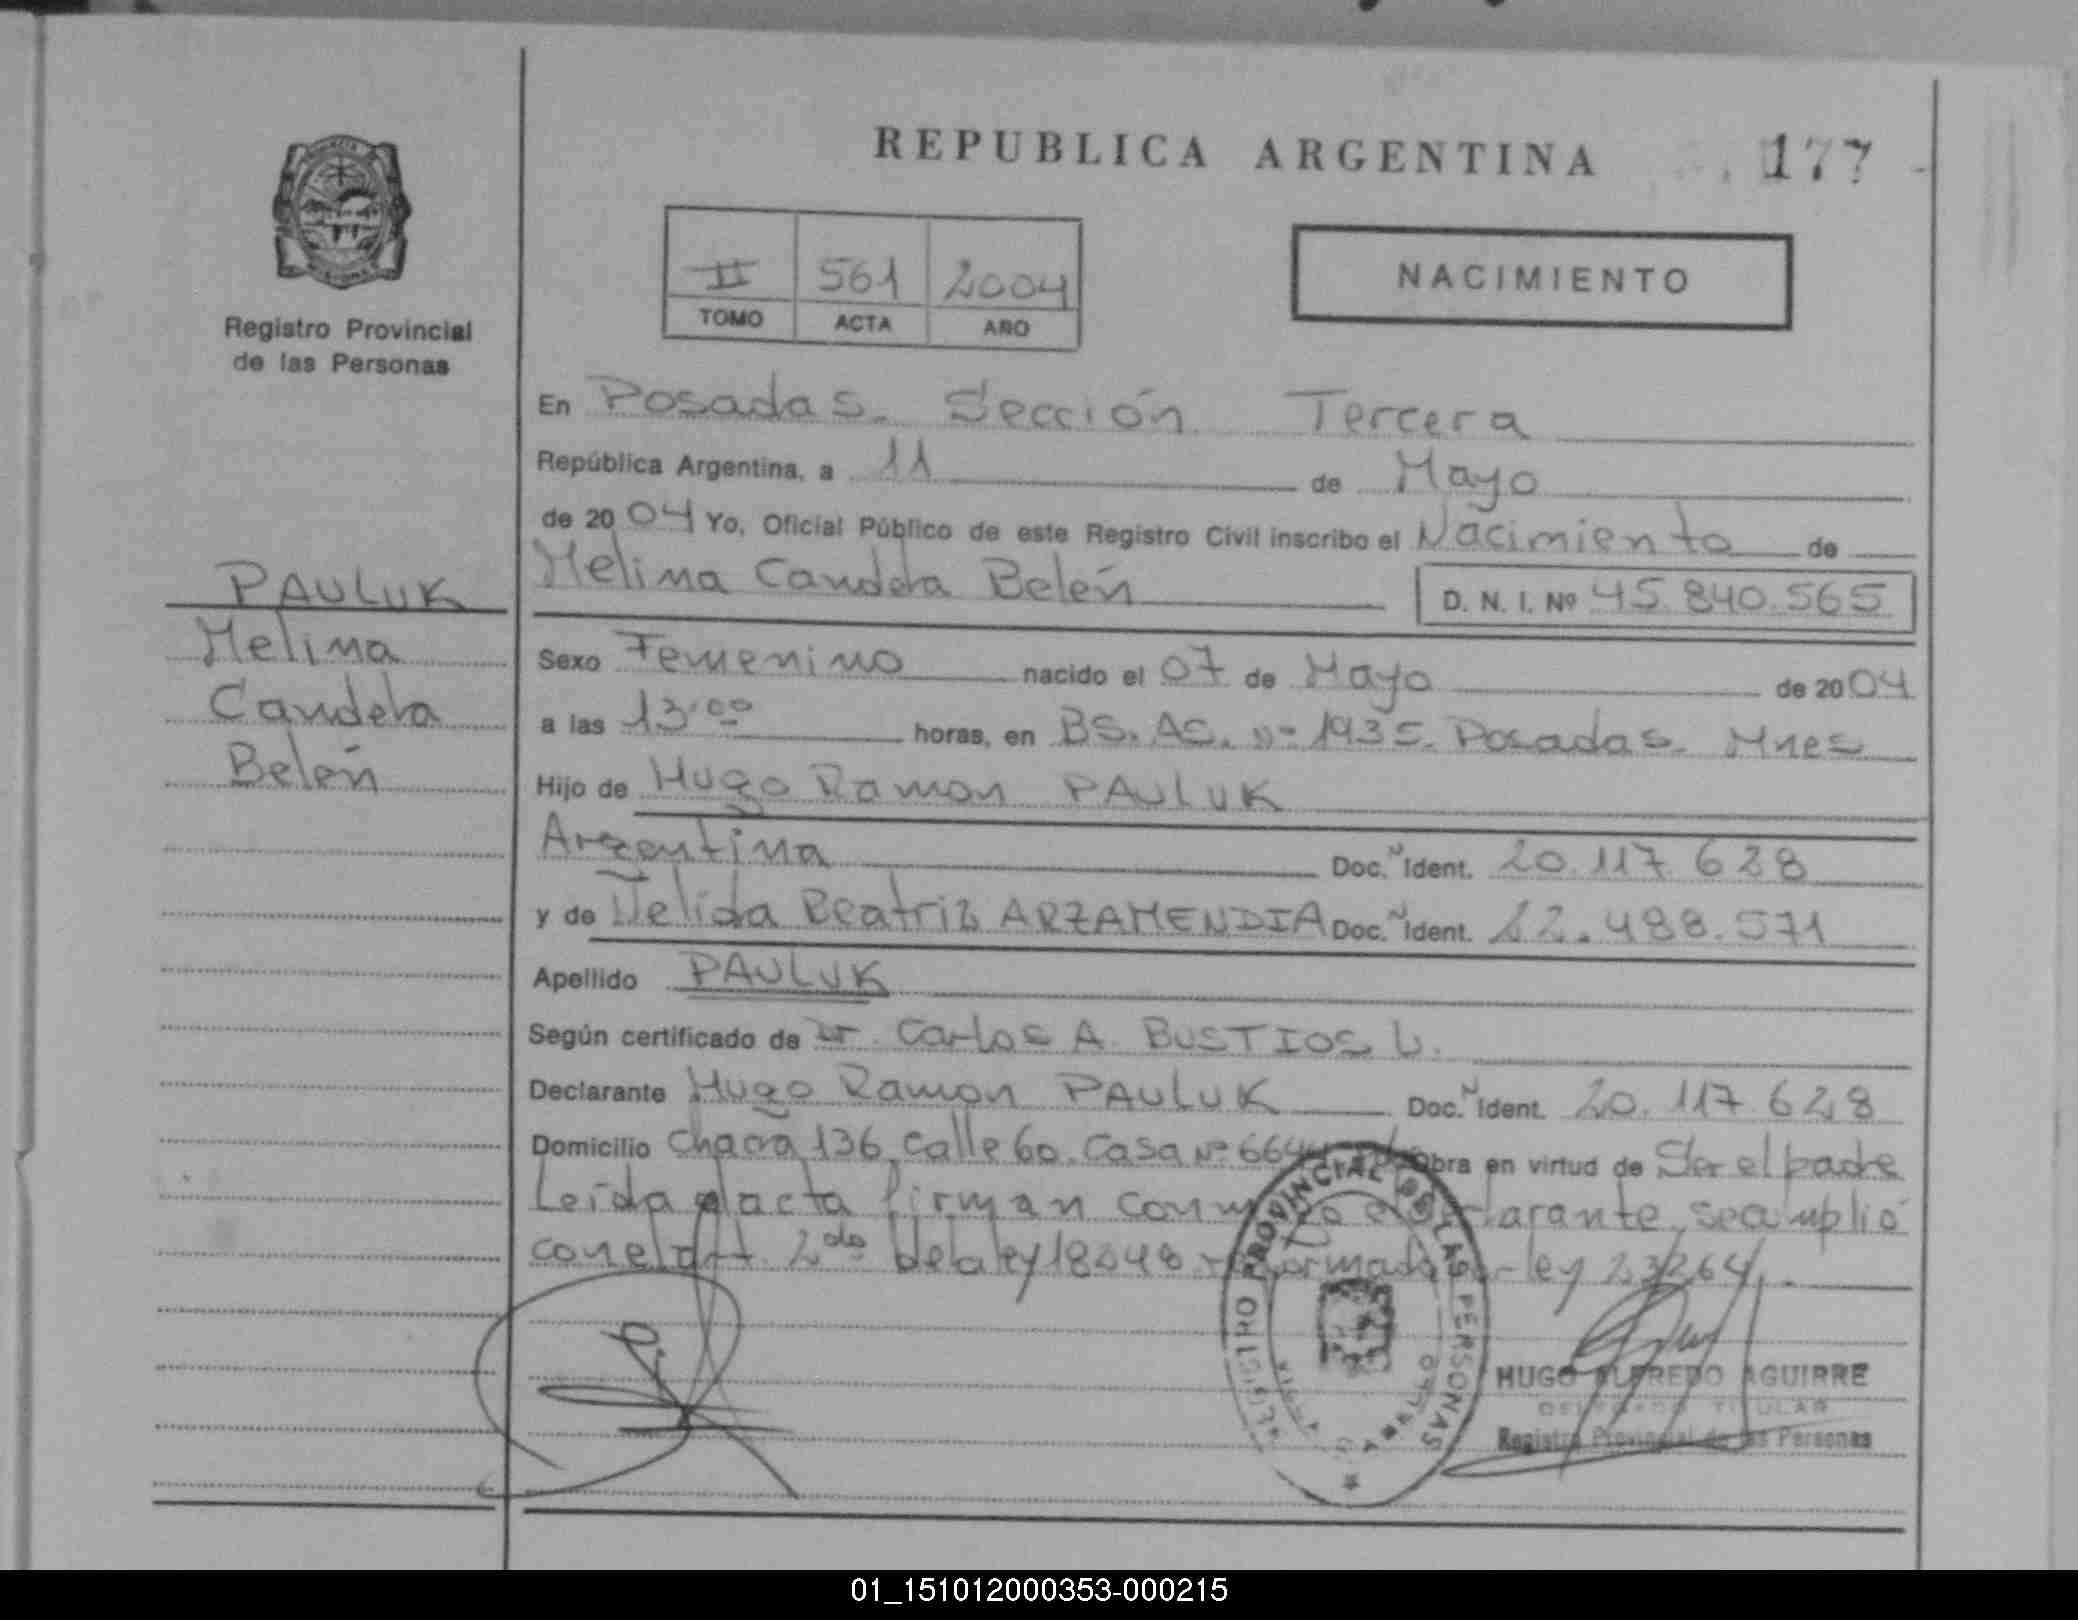 REPUBLICA ARGENTINA 177
II 561 2004
TOMO ACTA AÑO
NACIMIENTO
Registro Provincial
de las Personas
PAULUK
Melina
Candela
Belén
En Posadas. Sección Tercera
República Argentina, a 11 de Mayo
de 2004 Yo, Oficial Público de este Registro Civil inscribo el Nacimiento de
Melina Candela Belén D. N. I. Nº 45.840.565
Sexo Femenino nacido el 07 de Mayo de 2004
a las 13:00 horas, en BS. AS. nº 1935. Posadas. Mnes
Hijo de Hugo Ramon PAULUK
Argentina Doc. N Ident. 20.117.628
y de Nelida Beatriz ARZAMENDIA Doc. N Ident. 22.488.571
Apellido PAULUK
Según certificado de Dr. Carlos A. BUSTIOS L.
Declarante Hugo Ramon PAULUK Doc. N Ident. 20.117.628
Domicilio Chacra 136 Calle 60. Casa Nº 6644 Obra en virtud de Ser el padre
Leída el acta firman conmigo el declarante, se cumplió
con el art. 2do de la ley 18248 reformada ley 23264.
REGISTRO PROVINCIAL DE LAS PERSONAS
HUGO ALFREDO AGUIRRE
DELEGADO TITULAR
Registro Provincial de las Personas
01_151012000353-000215